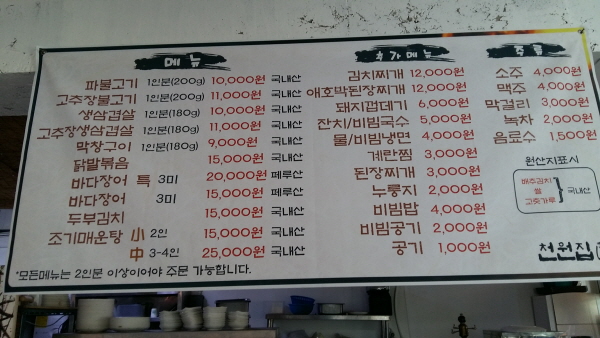 메뉴
파불고기 1인분(200g) 10,000원 국내산
고추장불고기 1인분(200g) 11,000원 국내산
생삼겹살 1인분(180g) 10,000원 국내산
고추장생삼겹살 1인분(180g) 11,000원 국내산
막창구이 1인분(180g) 9,000원 국내산
닭발볶음 15,000원 국내산
바다장어 특 3미 20,000원 페루산
바다장어 3미 15,000원 페루산
두부김치 15,000원 국내산
조기매운탕 小 2인 15,000원 국내산
中 3-4인 25,000원 국내산
*모든메뉴는 2인분 이상이어야 주문 가능합니다.
추가메뉴
김치찌개 12,000원
애호박된장찌개 12,000원
돼지껍데기 6,000원
잔치/비빔국수 5,000원
물/비빔냉면 4,000원
계란찜 3,000원
된장찌개 3,000원
누룽지 2,000원
비빔밥 4,000원
비빔공기 2,000원
공기 1,000원
주류
소주 4,000원
맥주 4,000원
막걸리 3,000원
녹차 2,000원
음료수 1,500원
원산지표시
배추김치
쌀
고춧가루
국내산
천원집